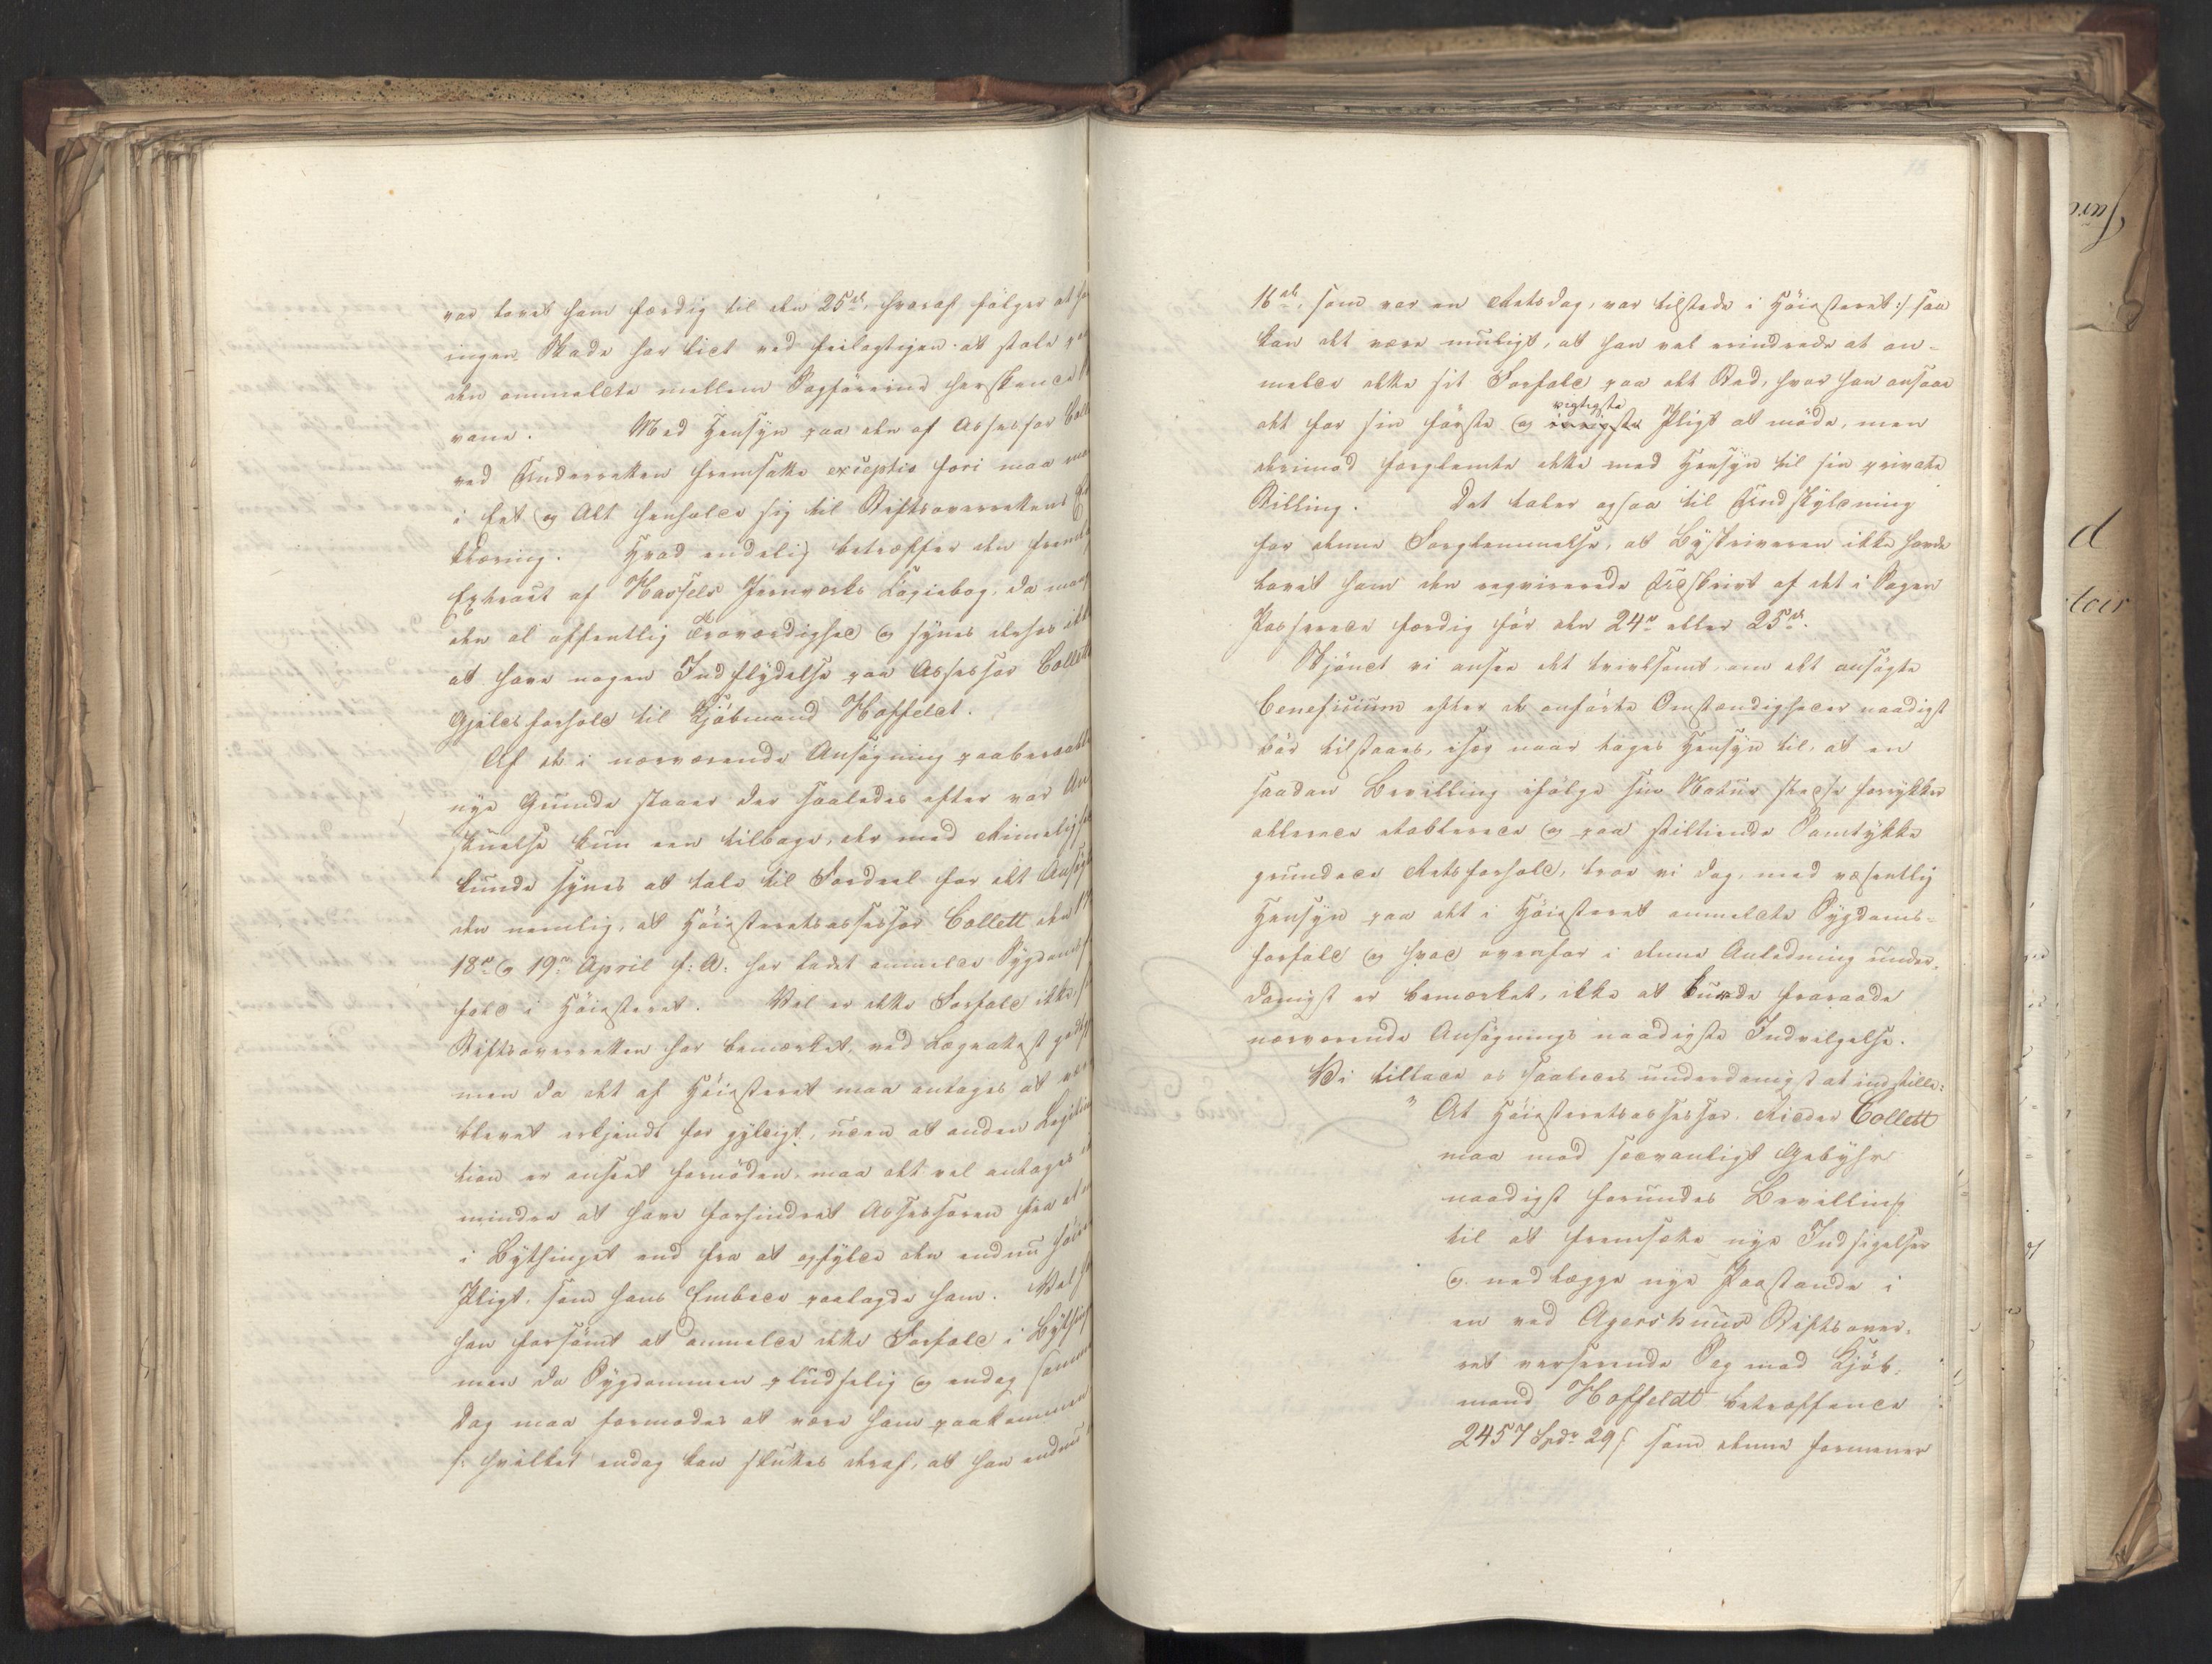 var lovet ham færdig til den 25de, hvoraf følger at
ingen Skade har lidt ved feilagtigen at stole paa
den ommeldte mellem Sagførerne herskende
vane. Med Hensyn paa den af Assessor Coll
ved Underretten fremsatte exceptio fori maa
i Eet og Alt henholde sig til Stiftsoverrettens
klæring. Hvad endelig betræffer den
Extract af Hassels Jernværks Copiebog, da
den al offentlig Troværdighed og synes desuden
at have nogen Indflydelse paa Assessor Collett
Gjeldsforhold til Kjøbmand Hoffeldt.
Af de i nærværende Ansøgning paaberaabte
nye Grunde staaer der saaledes efter vor An
skuelse kun een tilbage, der med Rimelighed
kunde synes at tale til Fordeel for det Ansøgte
den nemlig, at Høiesteretsassessor Collett den 17
18de og 19de April f: A: har ladet anmelde Sygdoms
fald i Høiesteret. Vel er dette Forfald ikke,
Stiftsoverretten har bemærket, ved Lægeattest
men da det af Høiesteret maa antages at være
blevet erkjendt for gyldigt, uden at anden Legitima
tion er anseet fornøden, maa det vel antages
mindre at have forhindret Assessoren fra at
i Bythinget end fra at opfylde den endnu høie
Pligt, som hans Embede paalagde ham. Vel
han forsømt at anmelde dette Forfald i Bything
men da Sygdommen pludselig og endog samme
Dag maa formodes at være ham paakommen
/: hvilket endog kan sluttes deraf, at han endnu
16de, som var en Retsdag, var tilstede i Høiesteret :/ saa
kan det være muligt, at han vel erindrede at an-
melde dette sit Forfald paa det Sted, hvor han ansaae
det for sin første og vigtigste Pligt at møde, men
derimod forglemte dette med Hensyn til sin private
Stilling. Det taler ogsaa til Undskyldning
for denne Forglemmelse, at Byskriveren ikke havde
lovet ham den reqvirerede Udskrivt af det i Sagen
Passerede færdig før den 24de eller 25de.
Skjøndt vi ansee det tvivlsomt, om det ansøgte
beneficium efter de anførte Omstændigheder naadigst
bør tilstaaes, især naar tages Hensyn til, at en
saadan Bevilling ifølge sin Natur stedse forrykker
allerede etablerede og paa stiltiende Samtykke
grundede Retsforhold, troe vi dog, med væsentlig
Hensyn paa det i Høiesteret anmeldte Sygdoms-
forfald og hvad ovenfor i denne Anledning under-
danigst er bemærket, ikke at burde fraraade
nærværende Ansøgnings naadigste Indvilgelse.
Vi tillade os saaledes underdanigst at indstille:
" At Høiesteretsassessor, Ridder Collett
maa mod sædvanligt Gebyhr
naadigst forundes Bevilling
til at fremsætte nye Indsigelser
og nedlægge nye Paastande i
en ved Agershuus Stiftsover-
ret verserende Sag mod Kjøb-
mand Hoffeldt betræffende
2457 Spdr 29 s som denne formener